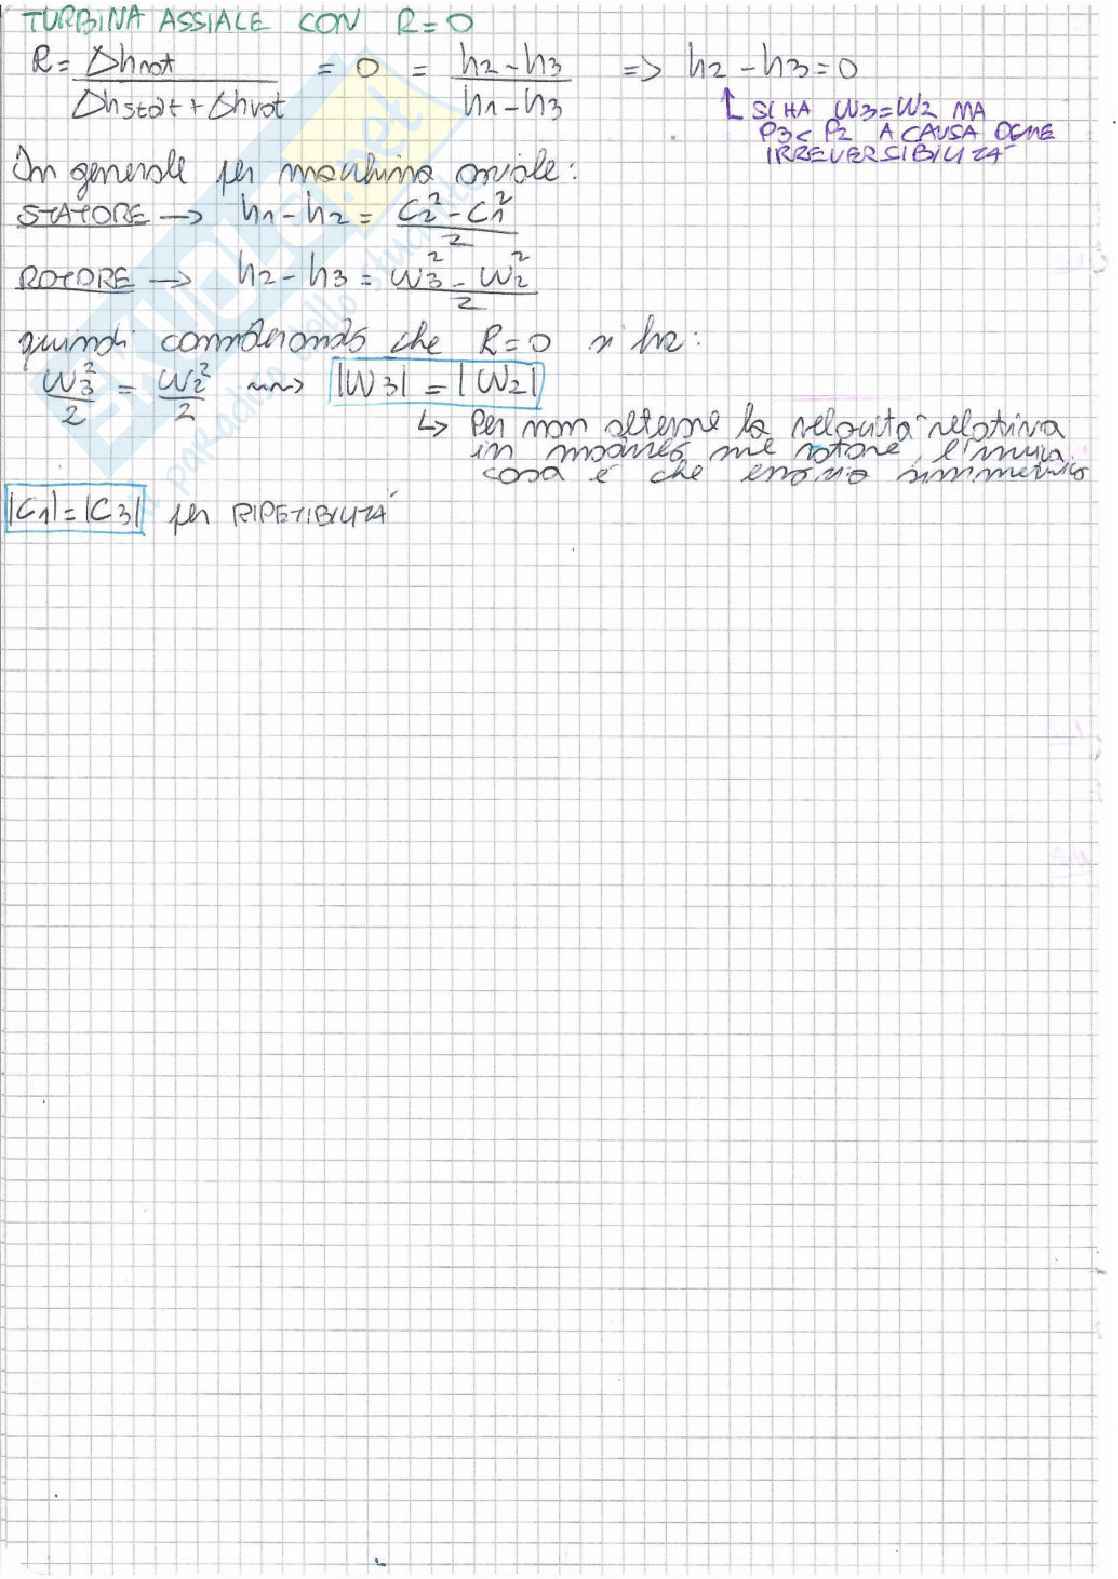 TURBINA ASSIALE CON R=0
R = Δhrot / (Δhstat + Δhrot) = 0 = (h2 - h3) / (h1 - h3) => h2 - h3 = 0
SI HA W3=W2 MA
P3 < P2 A CAUSA DELLE
IRREVERSIBILITÀ
In generale per macchina assiale:
STATORE → h1 - h2 = (C2² - C1²) / 2
ROTORE → h2 - h3 = (W3² - W2²) / 2
quindi considerando che R=0 si ha:
W3²/2 = W2²/2 ⇝ |W3| = |W2|
↳ Per non alterare la velocità relativa
in modulo nel rotore, l'unica
cosa è che esso sia simmetrico
|C1| = |C3| per RIPETIBILITÀ